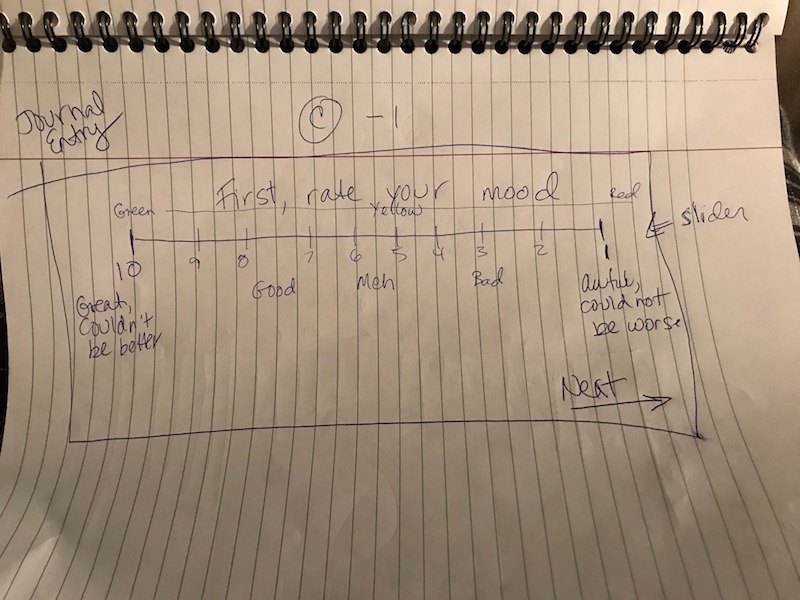 Journal
Entry
C -1
First, rate your mood
Green Yellow Red
slider
10 9 8 7 6 5 4 3 2 1
Good Meh Bad
Great,
couldn't
be better
awful,
could not
be worse
Next